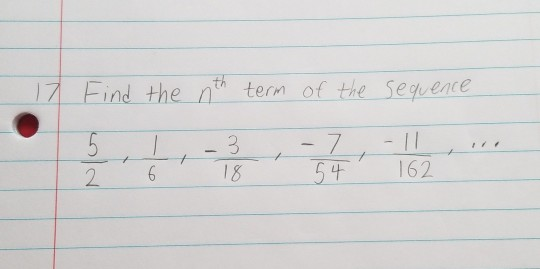 17 Find the nth term of the sequence
5/2, 1/6, -3/18, -7/54, -11/162, ...